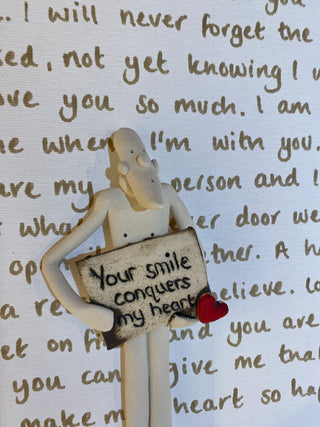 .. I will never forget the
sed, not yet knowing I w
ove you so much. I am
me when I'm with you.
are my person and I
t wha er door we
op ther. A h
a re believe. Lo
et on h and you are
you can give me that
make m heart so hap
Your smile
conquers
my heart